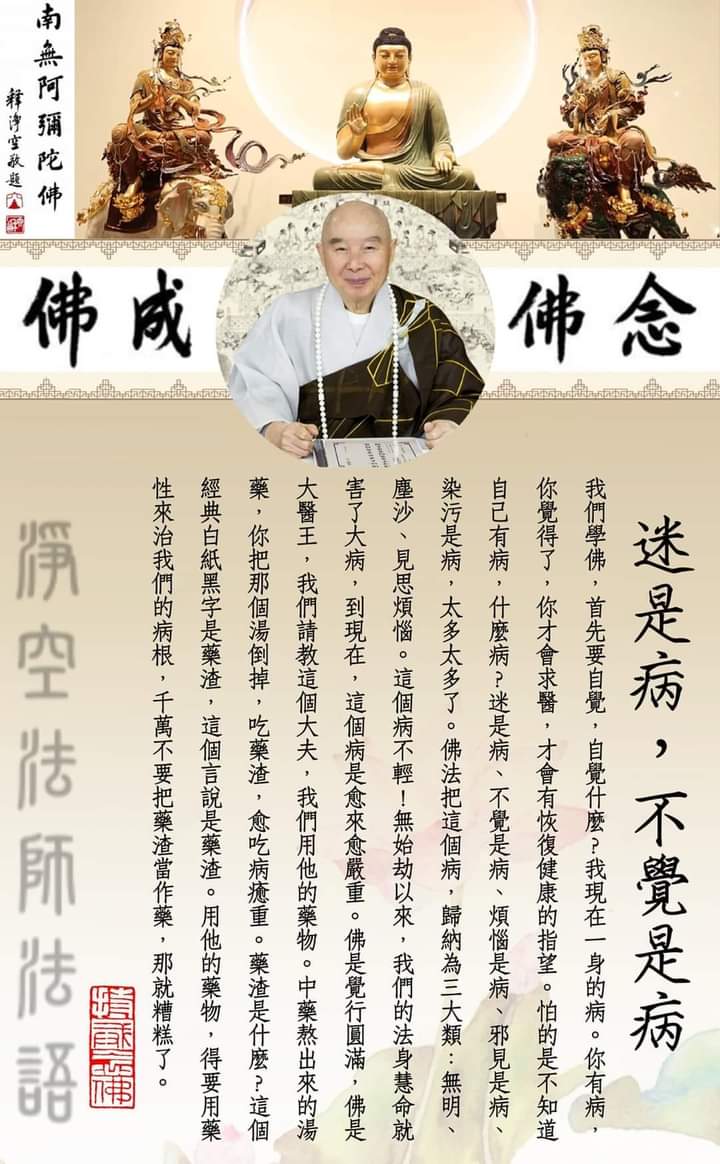 南無阿彌陀佛
釋淨空敬題
念佛
成佛
迷是病，不覺是病
我們學佛，首先要自覺，自覺什麼？我現在一身的病。你有病，
你覺得了，你才會求醫，才會有恢復健康的指望。怕的是不知道
自己有病，什麼病？迷是病、不覺是病、煩惱是病、邪見是病、
染污是病，太多太多了。佛法把這個病，歸納為三大類：無明、
塵沙、見思煩惱。這個病不輕！無始劫以來，我們的法身慧命就
害了大病，到現在，這個病是愈來愈嚴重。佛是覺行圓滿，佛是
大醫王，我們請教這個大夫，我們用他的藥物。中藥熬出來的湯
藥，你把那個湯倒掉，吃藥渣，愈吃病癒重。藥渣是什麼？這個
經典白紙黑字是藥渣，這個言說是藥渣。用他的藥物，得要用藥
性來治我們的病根，千萬不要把藥渣當作藥，那就糟糕了。
淨空法師法語